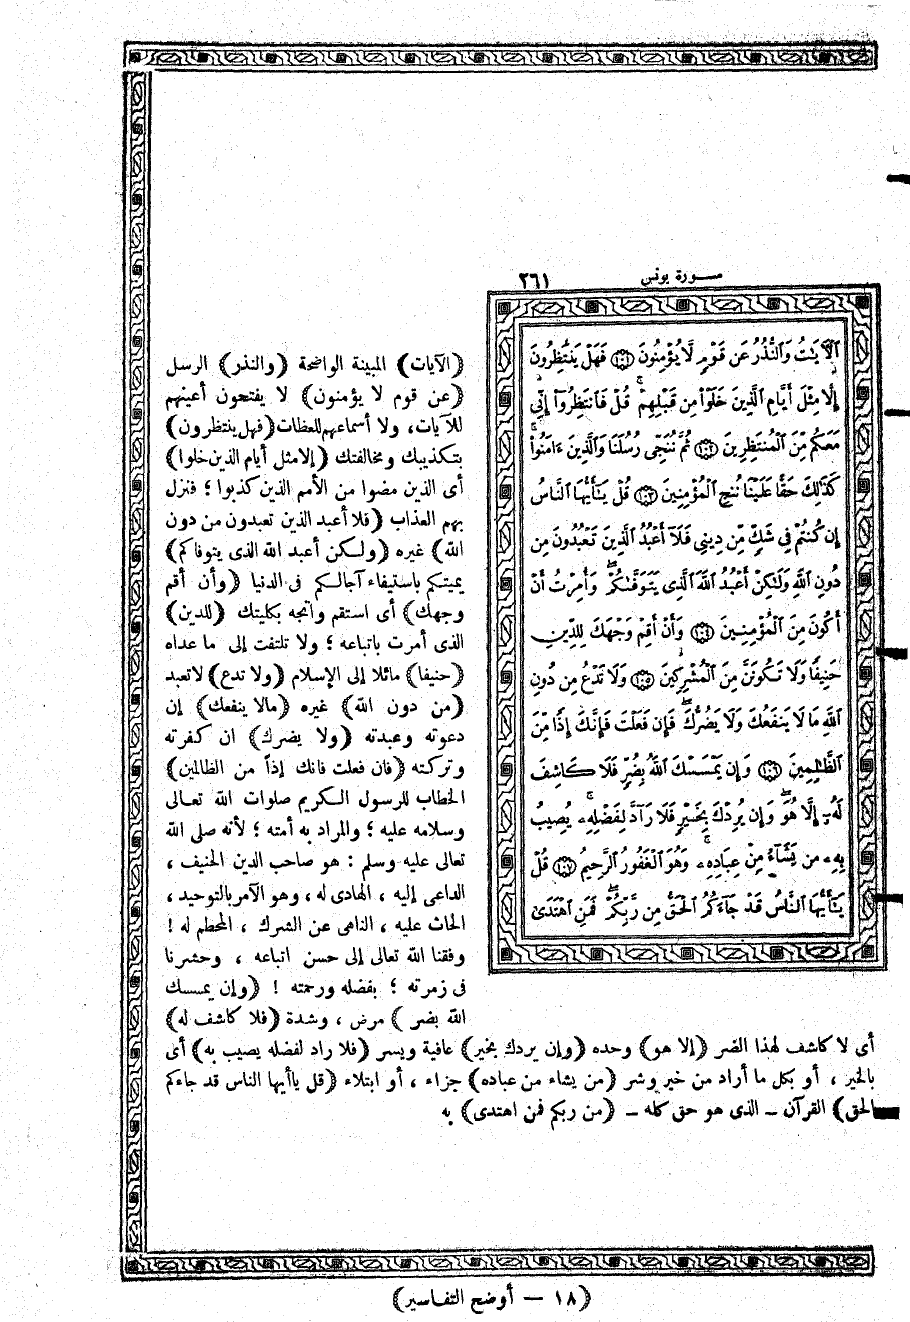 سورة يونس ٢٦١
ٱلْأَيَـٰتُ وَٱلنُّذُرُ عَن قَوْمٍ لَّا يُؤْمِنُونَ ۝١٠١ فَهَلْ يَنتَظِرُونَ
إِلَّا مِثْلَ أَيَّامِ ٱلَّذِينَ خَلَوْا۟ مِن قَبْلِهِمْ ۚ قُلْ فَٱنتَظِرُوٓا۟ إِنِّى
مَعَكُم مِّنَ ٱلْمُنتَظِرِينَ ۝١٠٢ ثُمَّ نُنَجِّى رُسُلَنَا وَٱلَّذِينَ ءَامَنُوا۟ ۚ
كَذَٰلِكَ حَقًّا عَلَيْنَا نُنجِ ٱلْمُؤْمِنِينَ ۝١٠٣ قُلْ يَـٰٓأَيُّهَا ٱلنَّاسُ
إِن كُنتُمْ فِى شَكٍّ مِّن دِينِى فَلَآ أَعْبُدُ ٱلَّذِينَ تَعْبُدُونَ مِن
دُونِ ٱللَّهِ وَلَـٰكِنْ أَعْبُدُ ٱللَّهَ ٱلَّذِى يَتَوَفَّىٰكُمْ ۖ وَأُمِرْتُ أَنْ
أَكُونَ مِنَ ٱلْمُؤْمِنِينَ ۝١٠٤ وَأَنْ أَقِمْ وَجْهَكَ لِلدِّينِ
حَنِيفًا وَلَا تَكُونَنَّ مِنَ ٱلْمُشْرِكِينَ ۝١٠٥ وَلَا تَدْعُ مِن دُونِ
ٱللَّهِ مَا لَا يَنفَعُكَ وَلَا يَضُرُّكَ ۖ فَإِن فَعَلْتَ فَإِنَّكَ إِذًا مِّنَ
ٱلظَّـٰلِمِينَ ۝١٠٦ وَإِن يَمْسَسْكَ ٱللَّهُ بِضُرٍّ فَلَا كَاشِفَ
لَهُۥٓ إِلَّا هُوَ ۖ وَإِن يُرِدْكَ بِخَيْرٍ فَلَا رَآدَّ لِفَضْلِهِۦ ۚ يُصِيبُ
بِهِۦ مَن يَشَآءُ مِنْ عِبَادِهِۦ ۚ وَهُوَ ٱلْغَفُورُ ٱلرَّحِيمُ ۝١٠٧ قُلْ
يَـٰٓأَيُّهَا ٱلنَّاسُ قَدْ جَآءَكُمُ ٱلْحَقُّ مِن رَّبِّكُمْ ۖ فَمَنِ ٱهْتَدَىٰ
(الآيات) المبينة الواضحة (والنذر) الرسل
(عن قوم لا يؤمنون) لا يفتحون أعينهم
للآيات، ولا أسماعهم للعظات (فهل ينتظرون)
بتكذيبك ومخالفتك (إلا مثل أيام الذين خلوا)
أى الذين مضوا من الأمم الذين كذبوا ؛ فنزل
بهم العذاب (فلا أعبد الذين تعبدون من دون
الله) غيره (ولكن أعبد الله الذى يتوفاكم)
يميتكم باستيفاء آجالكم فى الدنيا (وأن أقم
وجهك) أى استقم واتجه بكليتك (للدين)
الذى أمرت باتباعه ؛ ولا تلتفت إلى ما عداه
(حنيفا) مائلا إلى الإسلام (ولا تدع) لاتعبد
(من دون الله) غيره (مالا ينفعك) إن
دعوته وعبدته (ولا يضرك) ان كفرته
وتركته (فان فعلت فانك إذاً من الظالمين)
الخطاب للرسول الكريم صلوات الله تعالى
وسلامه عليه ؛ والمراد به أمته ؛ لأنه صلى الله
تعالى عليه وسلم : هو صاحب الدين الحنيف ،
الداعى إليه ، الهادى له ، وهو الآمر بالتوحيد ،
الحاث عليه ، الناهى عن الشرك ، المحطم له !
وفقنا الله تعالى إلى حسن اتباعه ، وحشرنا
فى زمرته ؛ بفضله ورحمته ! (وإن يمسسك
الله بضر) مرض ، وشدة (فلا كاشف له)
أى لا كاشف لهذا الضر (إلا هو) وحده (وإن يردك بخير) عافية ويسر (فلا راد لفضله يصيب به) أى
بالخير ، أو بكل ما أراد من خير وشر (من يشاء من عباده) جزاء ، أو ابتلاء (قل ياأيها الناس قد جاءكم
الحق) القرآن – الذى هو حق كله – (من ربكم فمن اهتدى) به
(١٨ – أوضح التفاسير)